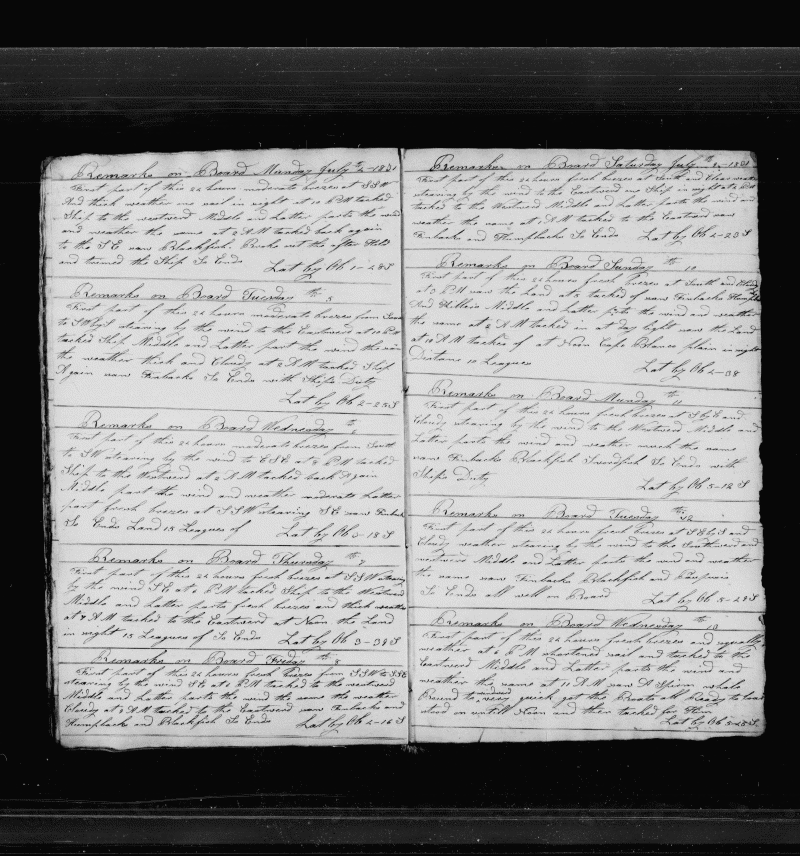 Remarks on Board Munday July th 4 1831
First part of this 24 hours moderate breezes at SSW
And thick weather one sail in sight at 10 PM tacked
Ship to the westward Middle and Latter parts the wind
and weather the same at 2 AM tacked back again
to the SE saw Blackfish Broke out the after Hold
and trimed the Ship So Ends Lat by Ob 1-28 S
Remarks on Board Tuesday th 5
First part of this 24 hours moderate breezes from South
to SWbyS stearing by the wind to the Eastward at 10 PM
tacked Ship Middle and Latter part the wind the same
the weather thick and Cloudy at 2 AM tacked Ship
Again saw Finbacks So Ends with Ships Duty
Lat by Ob 2-25 S
Remarks on Board Wednesday th 6
First part of this 24 hours moderate breezes from South
to SW stearing by the wind to ESE at 8 PM tacked
Ship to the Westward at 2 AM tacked back Again
Middle part the wind and weather moderate Latter
part fresh breezes at SSW stearing SE saw Finbacks
So Ends Land 15 Leagues of Lat by Ob 3-18 S
Remarks on Board Thursday th 7
First part of this 24 hours fresh breezes at SSW stearing
by the wind SE at 6 PM tacked Ship to the Westward
Middle and Latter parts fresh breezes and thick weather
at 7 AM tacked to the Eastward at Noon the Land
in sight 15 Leagues of So Ends Lat by Ob 3-39 S
Remarks on Board Friday th 8
First part of this 24 hours fresh breezes from SSW to SSE
stearing by the wind SE at 6 PM tacked to the westward
Middle and Latter parts the wind the same the weather
Cloudy at 8 AM tacked to the Eastward saw Finbacks and
Humpbacks and Blackfish So Ends Lat by Ob 2-16 S
Remarks on Board Saturday July th 9 1831
First part of this 24 hours fresh breezes at South and Clear weather
stearing by the wind to the Eastward one Ship in sight at 6 PM
tacked to the Westward Middle and Latter parts the wind and
weather the same at 7 AM tacked to the Eastward saw
Finbacks and Humpbacks So Ends Lat by Ob 2-23 S
Remarks on Board Sunday 10
First part of this 24 hours fresh breezes at South and
at 2 PM saw the Land at 5 tacked of saw Finbacks Humpbacks
And Killers Middle and Latter parts the wind and weather
the same at 2 AM tacked in at day light saw the Land
at 10 AM tacked of at Noon Cape Blanco plain in sight
Distans 10 Leagues Lat by Ob 4-38
Remarks on Board Munday 11
First part of this 24 hours fresh breezes at SbyE and
Cloudy stearing by the wind to the Westward Middle and
Latter parts the wind and weather much the same
saw Finbacks Blackfish Swordfish So Ends with
Ships Duty Lat by Ob 5-12 S
Remarks on Board Tuesday th 12
First part of this 24 hours fresh breezes at SEbS and
Cloudy weather stearing by the wind to the Southward and
westward Middle and Latter parts the wind and weather
the same saw Finbacks Blackfish and Porpoises
So Ends all well on Board Lat by Ob 5-29 S
Remarks on Board Wednesday th 13
First part of this 24 hours fresh breezes and squally
weather at 6 PM shortened sail and tacked to the
Eastward Middle and Latter parts the wind and
weather the same at 11 AM saw A Sperm whale
Bound to windward very quick got the Boats All Ready to lower
stood on untill Noon and then tacked for Him
Lat by Ob 5-25 S